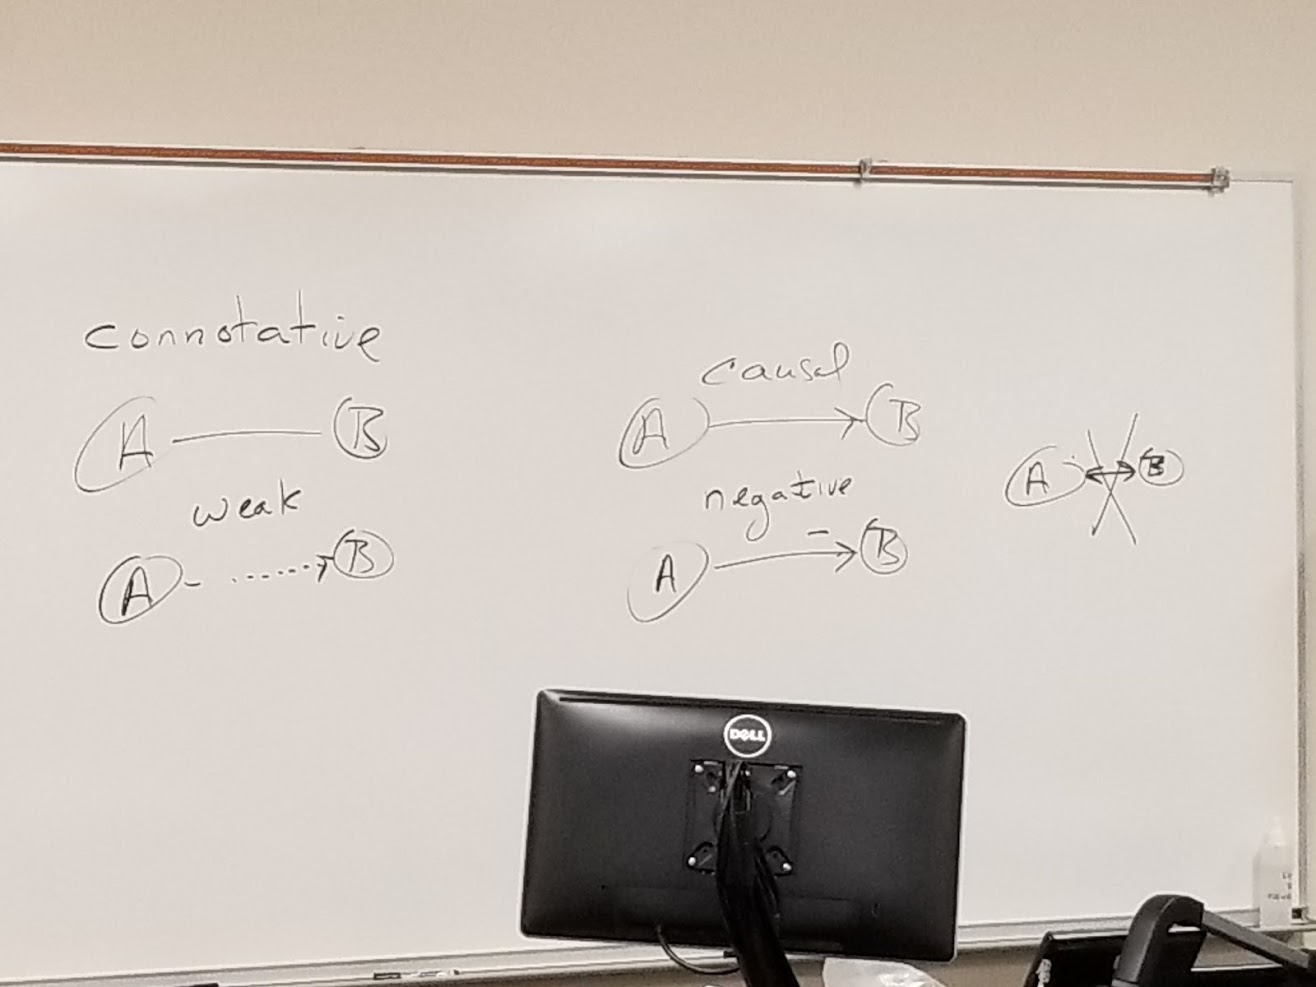 connotative
A B
weak
A B
causal
A B
negative
A - B
A B
DELL